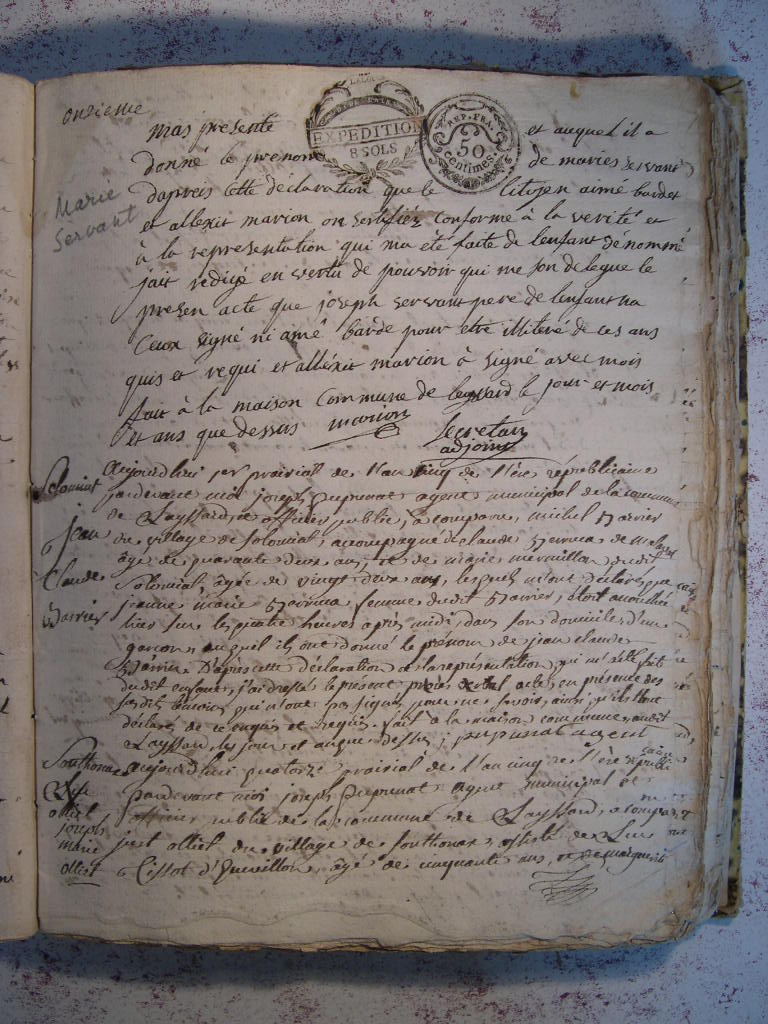 onzieme
mas presente
et auquel il a
LA LOI
EXPEDITION
8 SOLS
REP. FRA.
50
centimes
donné le prenom de maries servant
Marie
Servant
dapreis cette déclaration que le citoyen aimé bardet
et allexit marion on sertifiéz conforme à la verité et
à la representation qui ma eté faite de lenfant dénommé
jait redigé en vertu de pouvoir qui me son delegue le
presen acte que joseph servant pere de lenfant na
Ceux signé ni amé barde pour etre illiteré de ces ans
quis et requi et alléxit marion à signé avec mois
fait à la maison Commune de leyssard le jour et mois
et ans que dessus marion secretair
adjoint
Solomiat
jean
Claude
aujourd'hui per prairial de l'an cinq de l'ère républicaine
pardevant moi joseph agent municipal de la commune
de Layssard, et officier public, a comparu, michel
du village de solomiat, accompagné de claude
âgé de quarante deux ans, et de marie mermillon dudit
Solomiat, âgée de vingt deux ans, lesquels m'ont déclaré que
jeanne marie femme dudit étoit accouchée
hier sur les quatre heures après midi, dans son domicile, d'un
garçon, auquel ils ont donné le prénom de jean claude
D'après cette déclaration et la représentation qui m'a été faite
dudit enfant, j'ai dressé le présent acte, en présence des
susdits témoins qui n'ont pas signés pour ne savoir, ainsi qu'ils l'ont
déclaré de ce enquis et requis. fait à la maison commune dudit
Layssard, les jour et an que dessus, agent
Southonax
olliet
joseph
marie
olliet
aujourd'hui quatorze prairial de l'an cinq de l'ère républicaine
pardevant moi joseph agent municipal et
officier public de la commune de Layssard, a comparu
olliet du village de southonax, assisté de Luc
Lissot d'Yzevillon, âgé de cinquante ans, et de marguerite